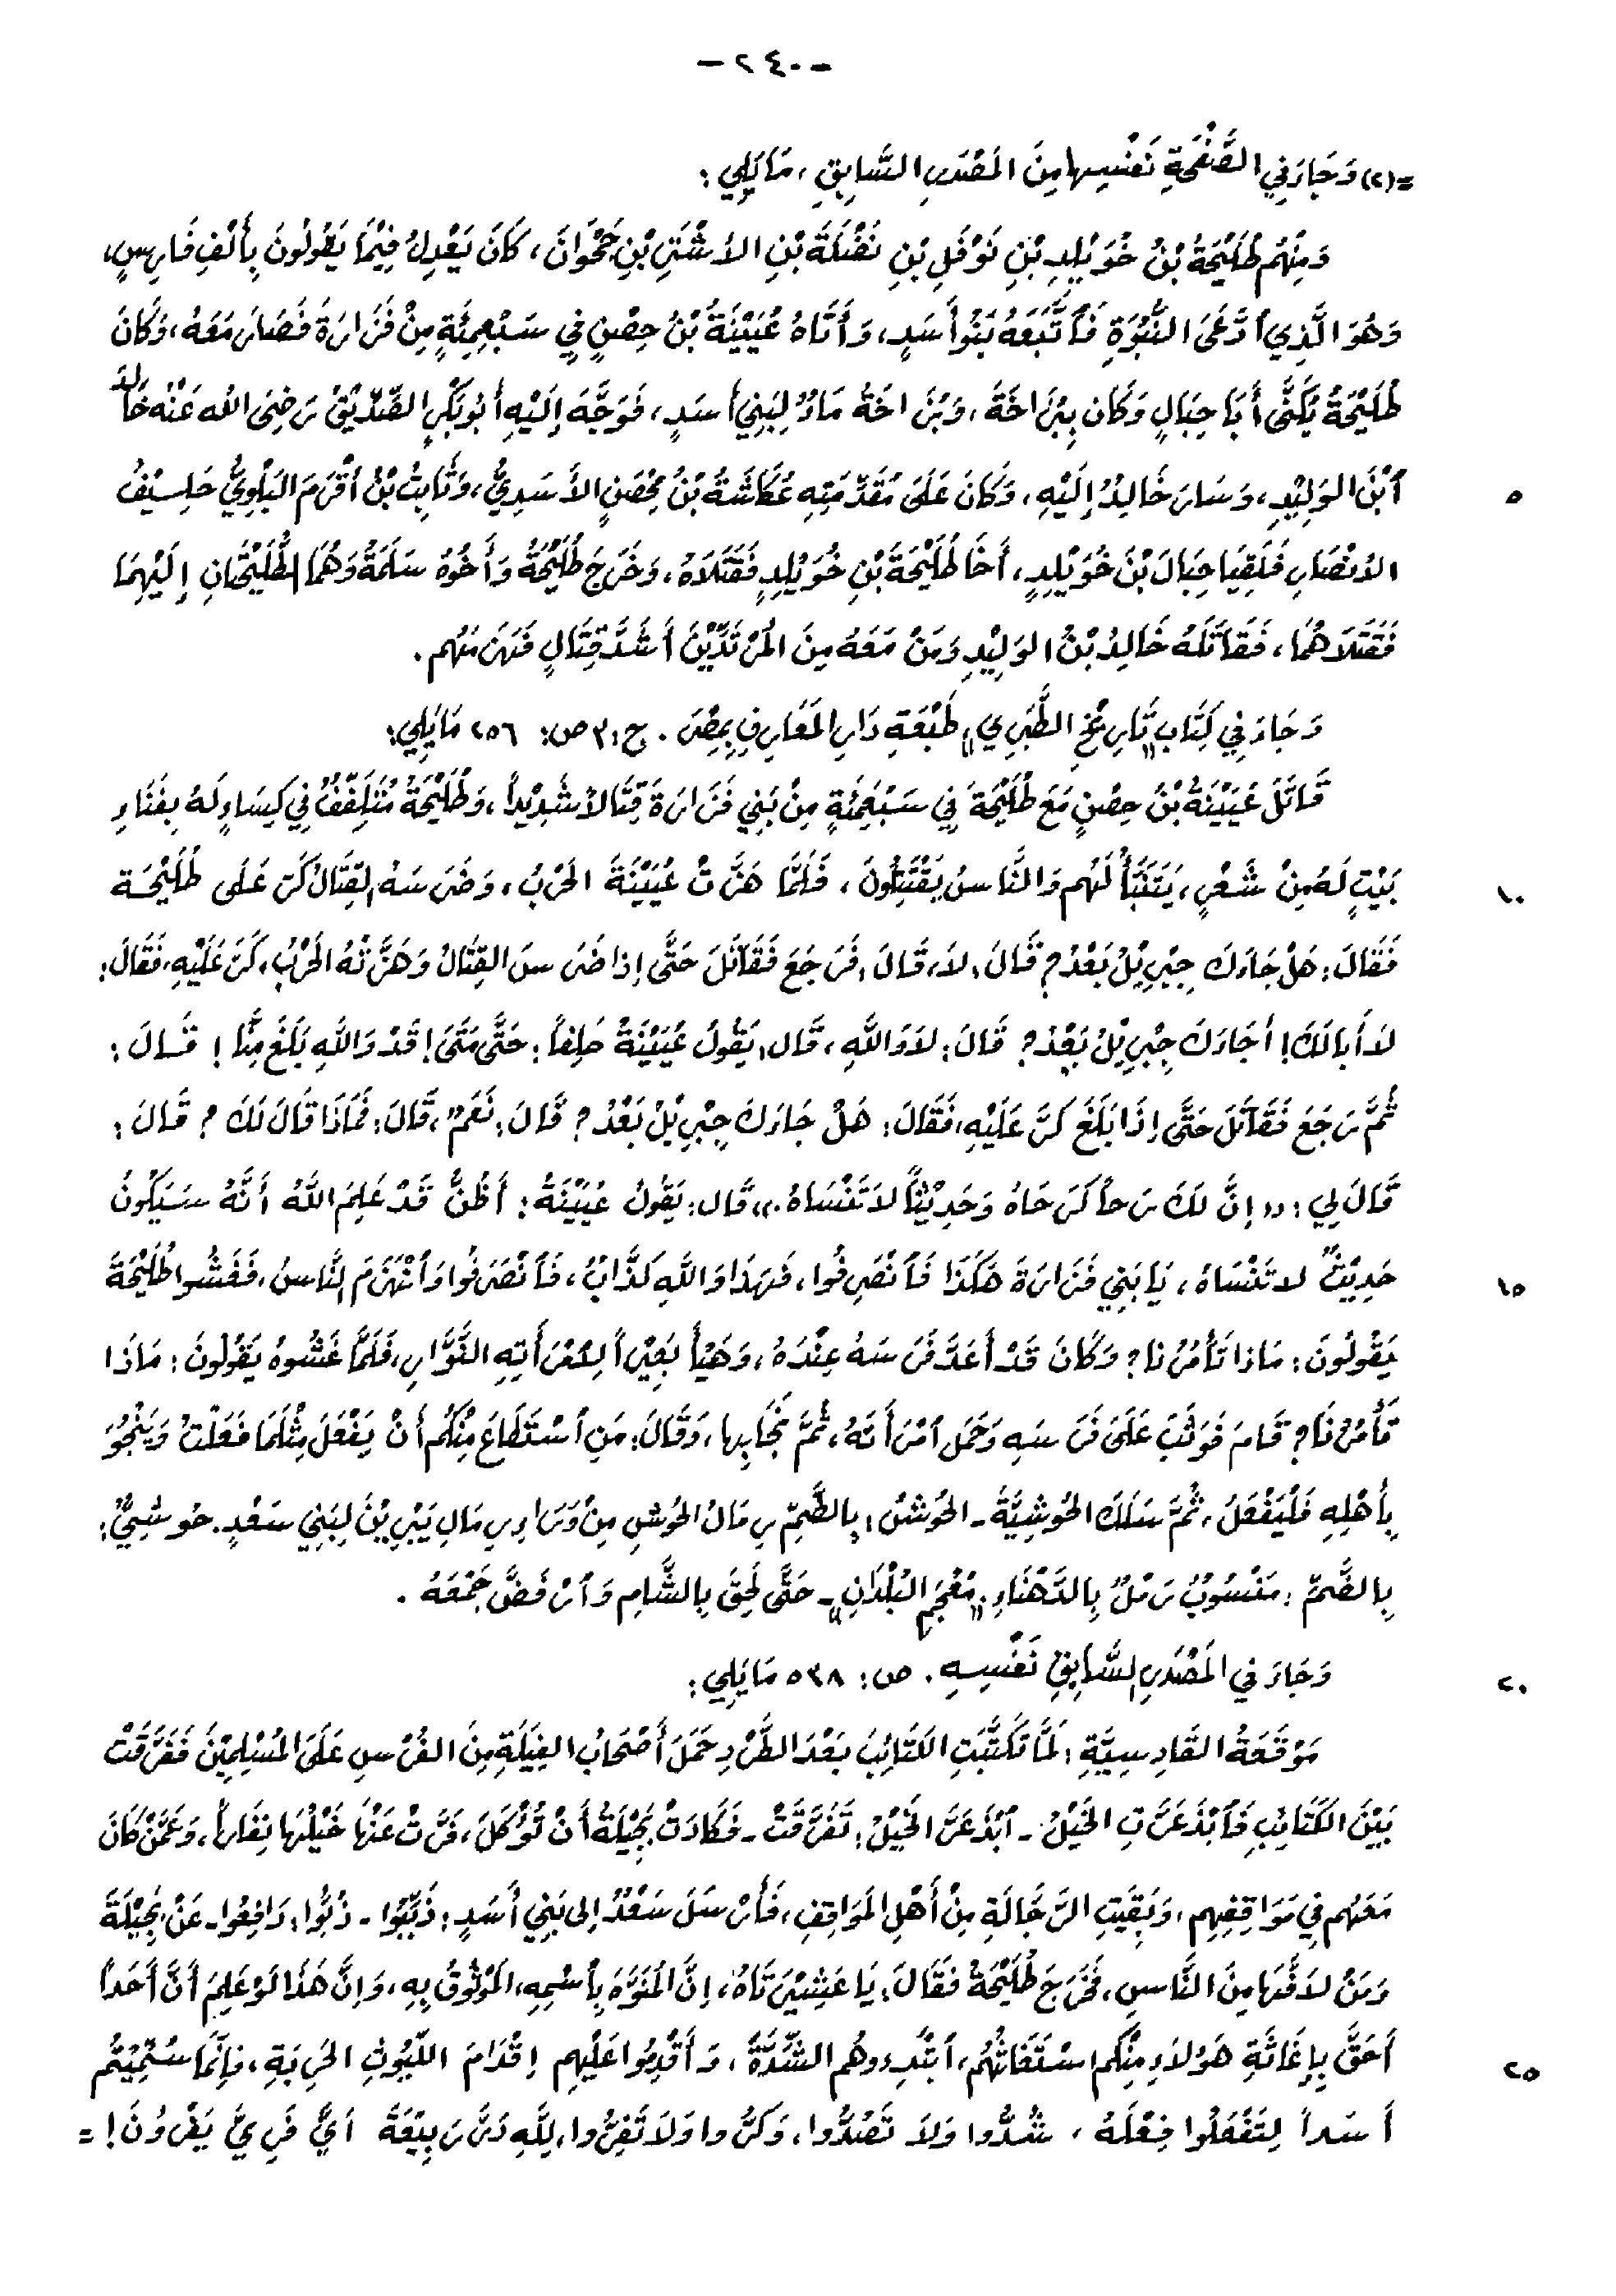 - ٢٤٠ -
=(٢) وَجَاءَ فِي الصَّفْحَةِ نَفْسِها مِنَ المَصْدَرِ السَّابِقِ، مَا يَلِي:
وَمِنْهُم طُلَيْحَةُ بْنُ خُوَيْلِدِ بْنِ نَوْفَلِ بْنِ نَضْلَةَ بْنِ الأَشْتَرِ بْنِ جَحْوَانَ، كَانَ يَعْدِلُ فِيْمَا يَقُولُونَ بِأَلْفِ فَارِسٍ،
وَهُوَ الَّذِي ٱدَّعَى النُّبُوَّةَ فَٱتَّبَعَهُ بَنُو أَسَدٍ، وَأَتَاهُ عُيَيْنَةُ بْنُ حِصْنٍ فِي سَبْعِمِئَةٍ مِنْ فَزَارَةَ فَصَارَ مَعَهُ، وَكَانَ
طُلَيْحَةُ يُكَنَّى أَبَا حِبَالٍ وَكَان بِبُزَاخَةَ، وَبُزَاخَةُ مَاءٌ لِبَنِي أَسَدٍ، فَوَجَّهَ إِلَيْهِ أَبُو بَكْرٍ الصِّدِّيْقُ رَضِيَ الله عَنْهُ خَالِدَ
ٱبْنَ الوَلِيْدِ، وَسَارَ خَالِدٌ إِلَيْهِ، وَكَانَ عَلَى مُقَدِّمَتِهِ عُكَّاشَةُ بْنُ مِحْصَنٍ الأَسَدِيُّ، وَثَابِتُ بْنُ أَقْرَمَ البَلْوِيُّ حَلِيْفُ
٥
الأَنْصَارِ فَلَقِيَا حِبَالَ بْنَ خُوَيْلِدٍ، أَخَا طُلَيْحَةَ بْنِ خُوَيْلِدٍ فَقَتَلَاهُ، وَخَرَجَ طُلَيْحَةُ وَأَخُوهُ سَلَمَةُ وَهُمَا الطُّلَيْحَتَانِ إِلَيْهِمَا
فَقَتَلَاهُمَا، فَقَاتَلَهُ خَالِدُ بْنُ الوَلِيْدِ وَمَنْ مَعَهُ مِنَ المُرْتَدِّيْنَ أَشَدَّ قِتَالٍ فَهَزَمَهُم.
وَجَاءَ فِي كِتَابِ «تَارِيْخِ الطَّبَرِي» طَبْعَةِ دَارِ المَعَارِفِ بِمِصْرَ. ج: ٣ ص: ٢٥٦ مَا يَلِي:
قَاتَلَ عُيَيْنَةُ بْنُ حِصْنٍ مَعَ طُلَيْحَةَ فِي سَبْعِمِئَةٍ مِنْ بَنِي فَزَارَةَ قِتَالاً شَدِيْداً، وَطُلَيْحَةُ مُتَلَفِّفٌ فِي كِسَاءٍ لَهُ بِفِنَاءِ
بَيْتٍ لَهُ مِنْ شَعْرٍ، يَتَنَبَّأُ لَهُم وَالنَّاسُ يَقْتَتِلُونَ، فَلَمَّا هَزَّتْ عُيَيْنَةَ الحَرْبُ، وَضَرَسَهُ القِتَالُ كَرَّ عَلَى طُلَيْحَة
١٠
فَقَالَ: هَلْ جَاءَكَ جِبْرِيْلُ بَعْدُ؟ قَالَ: لاَ، قَالَ: فَرَجَعَ فَقَاتَلَ حَتَّى إِذا ضَرَسَ القِتَالُ وَهَزَّتْهُ الحَرْبُ، كَرَّ عَلَيْهِ، فَقَالَ:
لاَ أَبَا لَكَ! أَجَاءَكَ جِبْرِيْلُ بَعْدُ؟ قَالَ: لاَ وَاللَّهِ، قَال: يَقُولُ عُيَيْنَةُ حَلِفاً: حَتَّى مَتَى! قَدْ وَاللَّهِ بَلَغَ مِنَّا! قَالَ:
ثُمَّ رَجَعَ فَقَاتَلَ حَتَّى إِذَا بَلَغَ كَرَّ عَلَيْهِ، فَقَالَ: هَلْ جَاءَكَ جِبْرِيْلُ بَعْدُ؟ قَالَ: نَعَمْ، قَالَ: فَمَاذَا قَالَ لَكَ؟ قَالَ:
قَالَ لِي: «إِنَّ لَكَ رَحاً كَرَحَاهُ وَحَدِيْثاً لاَ تَنْسَاهُ.» قَال: يَقُولُ عُيَيْنَةُ: أَظُنُّ قَدْ عَلِمَ اللَّهُ أَنَّهُ سَيَكُونُ
حَدِيْثٌ لا تَنْسَاهُ، يَا بَنِي فَزَارَةَ هَكَذَا فَٱنْصَرِفُوا، فَهَذَا وَاللَّهِ كَذَّابٌ، فَٱنْصَرَفُوا وَٱنْهَزَمَ النَّاسُ، فَغَشُوا طُلَيْحَةَ
١٥
يَقُولُونَ: مَاذا تَأْمُرُنا؟ وَكَانَ قَدْ أَعَدَّ فَرَسَهُ عِنْدَهُ، وَهَيَّأَ بَعِيْراً لِٱمْرَأَتِهِ النَّوَّارِ، فَلَمَّا غَشُوهُ يَقُولُونَ: مَاذَا
تَأْمُرُنَا؟ قَامَ فَوَثَبَ عَلَى فَرَسِهِ وَحَمَلَ ٱمْرَأَتَهُ، ثُمَّ نَجَا بِها، وَقَالَ: مَنِ ٱسْتَطَاعَ مِنْكُم أَنْ يَفْعَلَ مِثْلَمَا فَعَلْتُ وَيَنْجُوَ
بِأَهْلِهِ فَلْيَفْعَلْ، ثُمَّ سَلَكَ الحُوشِيَّةَ - الحُوشُ: بِالضَّمِّ رِمَالُ الحُوشِ مِنْ وَرَاءِ رِمَالِ يَبْرِيْنَ لِبَنِي سَعْدٍ. حُوشِيٌّ:
بِالضَّمِّ: مَنْسُوبٌ رَمْلٌ بِالدَّهْنَاءِ. «مُعْجَمِ البُلْدَانِ» - حَتَّى لَحِقَ بِالشَّامِ وَٱرْفَضَّ جَمْعُهُ.
وَجَاءَ فِي المَصْدَرِ السَّابِقِ نَفْسِهِ. ص: ٥٣٨ مَا يَلِي:
٢٠
مَوْقَعَةُ القَادِسِيَّةِ: لَمَّا تَكَتَّبَتِ الكَتَائِبُ بَعْدَ الطَّرْدِ حَمَلَ أَصْحَابُ الفِيَلَةِ مِنَ الفُرْسِ عَلَى المُسْلِمِيْنَ فَفَرَّقَتْ
بَيْنَ الكَتَائِبِ فَٱبْذَعَرَّتِ الخَيْلُ - ٱبْذَعَرَّ الخَيْلُ: تَفَرَّقَتْ - فَكَادَتْ بَجِيْلَةُ أَنْ تُؤْكَلَ، فَرَّتْ عَنْهَا خَيْلُهَا نِفَاراً، وَعَمَّنْ كَانَ
مَعَهُم فِي مَوَاقِفِهِم، وَبَقِيَتِ الرَّجَّالَةِ مِنْ أَهْلِ المَوَاقِفِ، فَأَرْسَلَ سَعْدٌ إِلى بَنِي أَسَدٍ: ذَبِّبُوا - ذُبُّوا: دَافِعُوا - عَنْ بَجِيْلَةَ
وَمَنْ لاَفَّهَا مِنَ النَّاسِ، فَخَرَجَ طُلَيْحَةُ فَقَالَ: يَا عَشِيْرَتَاهُ، إِنَّ المُنَوَّهَ بِٱسْمِهِ، المَوْثُوقُ بِهِ، وَإِنَّ هَذَا لَوْ عَلِمَ أَنَّ أَحَداً
أَحَقَّ بِإِغَاثَةِ هَؤلاَءِ مِنْكُم اسْتَغَاثَهُم، ٱبْتَدِءوهُم الشِّدَّةَ، وَأَقْدِمُوا عَلَيْهِم إِقْدَامَ اللُّيُوثِ الحَرِبَةِ، فَإِنَّمَا سُمِّيْتُم
٢٥
أَسَداً لِتَفْعَلُوا فِعْلَهُ، شُدُّوا وَلاَ تَصُدُّوا، وَكُرُّوا وَلاَ تَفِرُّوا، لِلَّهِ دَرُّ رَبِيْعَةَ أَيَّ فَرِيٍّ يَفْرُونَ! =